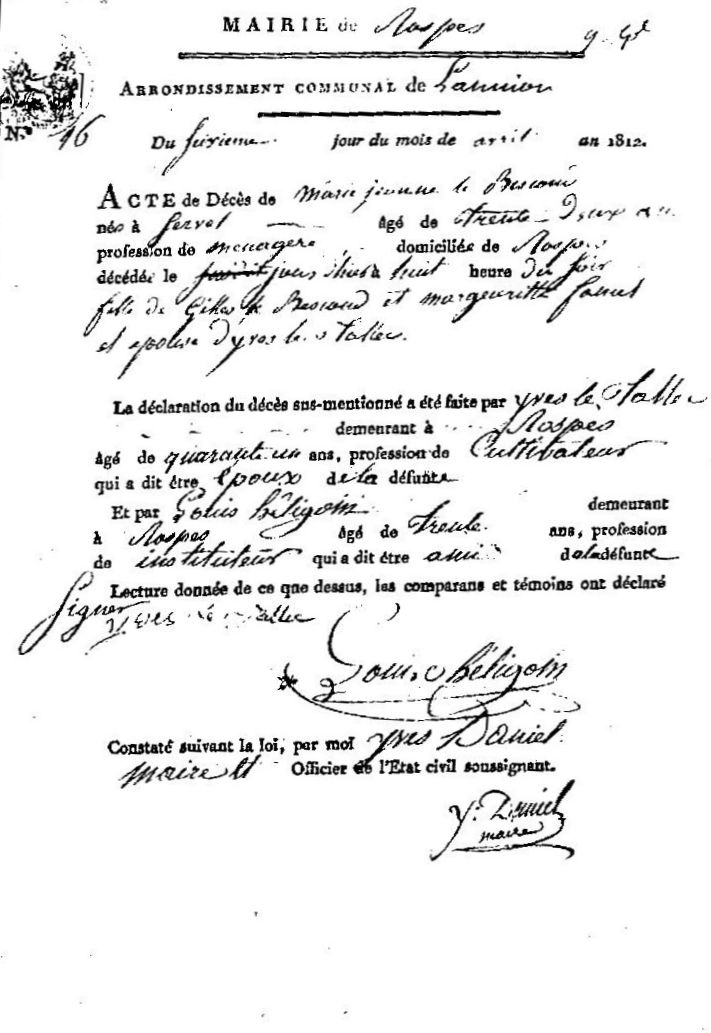 MAIRIE de Rospes
ARRONDISSEMENT COMMUNAL de Lannion
N.º 16
Du sixieme jour du mois de avril an 1812.
ACTE de Décès de marie jeanne le Bescond
née à Servel âgé de trente-deux an
profession de menagere domiciliée de Rospes
décédée le jour à huit heure du soir
fille de Gilles le Bescond et margueritte
et epouse d'yves le Tallec.
La déclaration du décès sus-mentionné a été faite par yves le Tallec
demeurant à Rospes
âgé de quarante un ans, profession de Cultivateur
qui a dit être epoux de la défunte
Et par Louis héligoin demeurant
à Rospes âgé de trente ans, profession
de instituteur qui a dit être ami de la défunte
Lecture donnée de ce que dessus, les comparans et témoins ont déclaré
Signer
yves le Tallec
Louis héligoin
Constaté suivant la loi, par moi yves Daniel
maire et Officier de l'Etat civil soussignant.
y. Daniel
maire